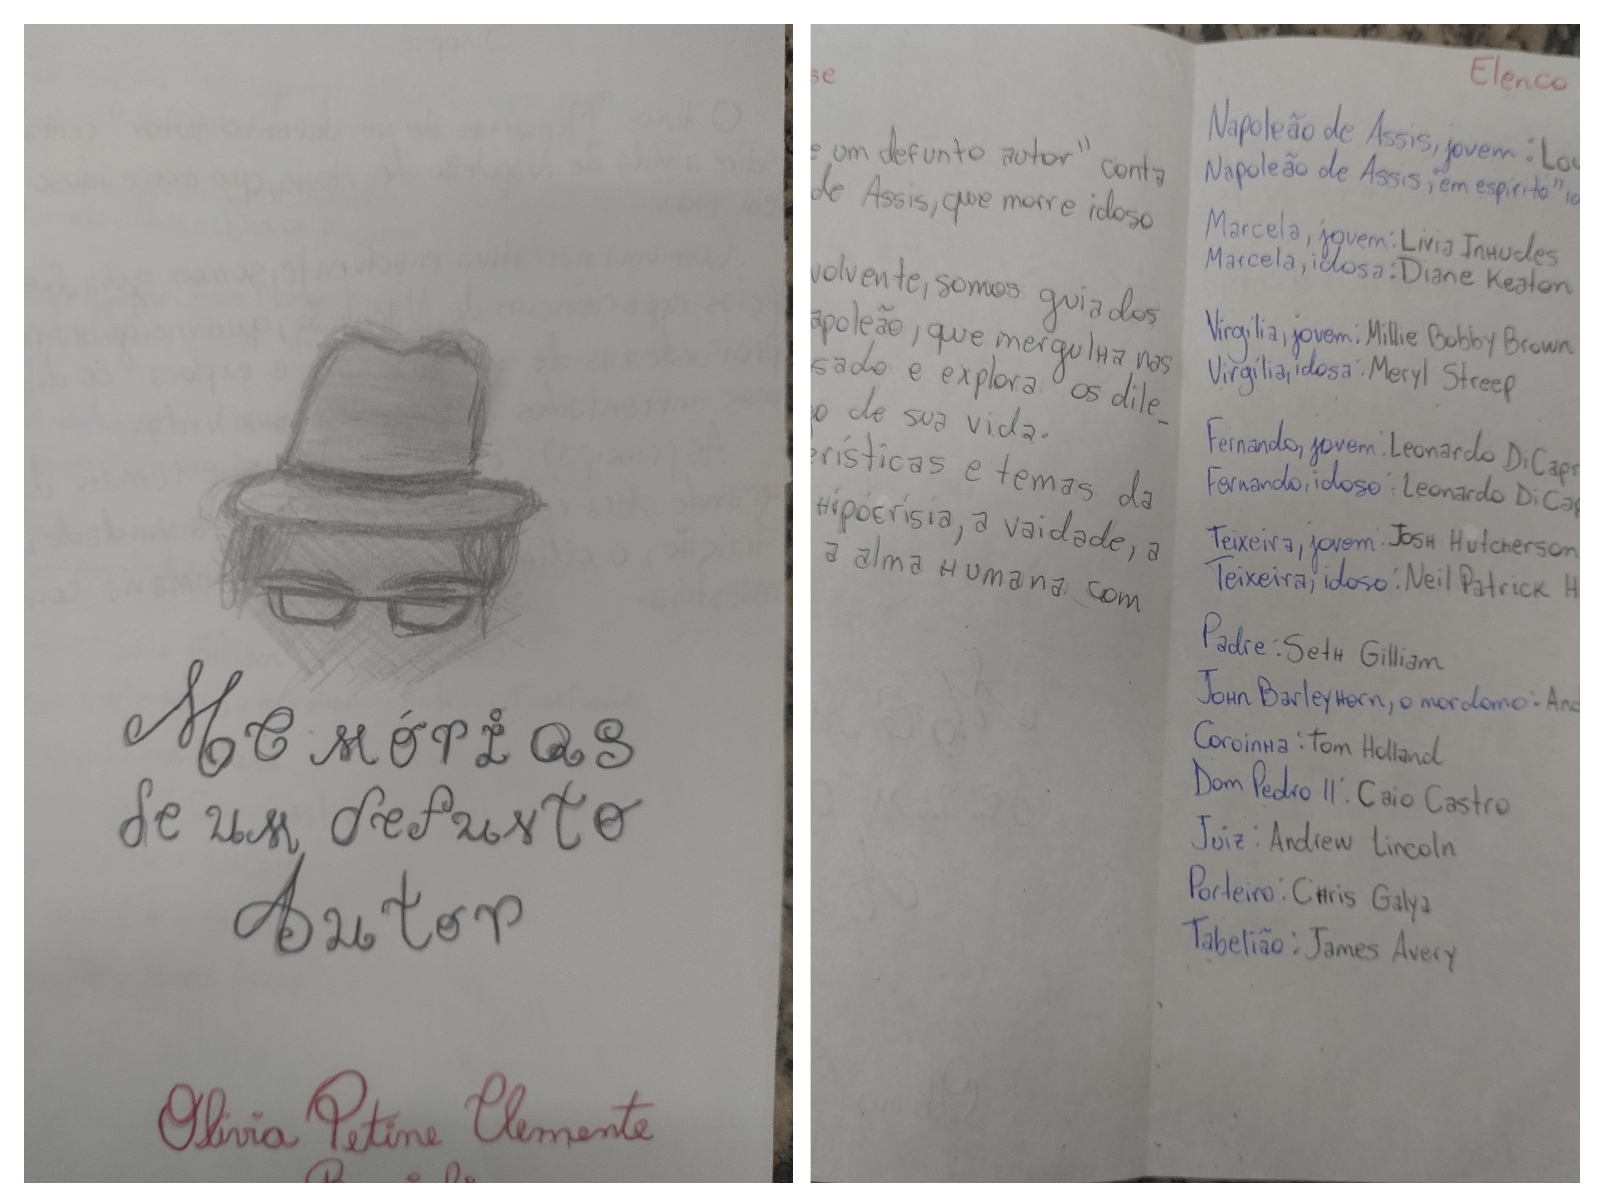 Memórias
de um defunto
Autor
Olivia Petine Clemente
se
e um defunto autor" conta
de Assis, que morre idoso
volvente, somos guiados
apoleão, que mergulha nas
sado e explora os dile-
o de sua vida.
erísticas e temas da
hipocrisia, a vaidade, a
a alma humana com
Elenco
Napoleão de Assis, jovem: Lou
Napoleão de Assis, "em espírito" id
Marcela, jovem: Livia Inhudes
Marcela, idosa: Diane Keaton
Virgília, jovem: Millie Bobby Brown
Virgília, idosa: Meryl Streep
Fernando, jovem: Leonardo DiCapr
Fernando, idoso: Leonardo DiCap
Teixeira, jovem: Josh Hutcherson
Teixeira, idoso: Neil Patrick H
Padre: Seth Gilliam
John Barleyhorn, o mordomo: And
Coroinha: Tom Holland
Dom Pedro II: Caio Castro
Juiz: Andrew Lincoln
Porteiro: Chris Galya
Tabelião: James Avery